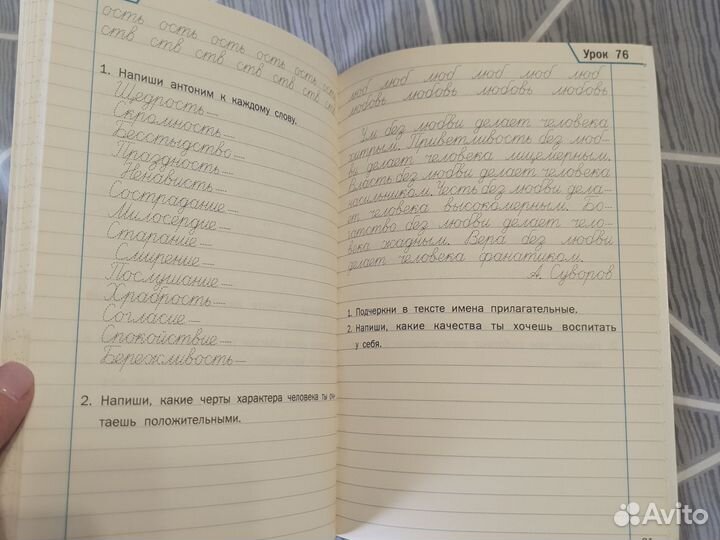 ость ость ость ость ость ость
ств ств ств ств ств ств ств
1. Напиши антоним к каждому слову.
Щедрость —
Скромность —
Бесстыдство —
Праздность —
Ненависть —
Сострадание —
Милосердие —
Старание —
Смирение —
Послушание —
Храбрость —
Согласие —
Спокойствие —
Бережливость —
2. Напиши, какие черты характера человека ты
таешь положительными.
Урок 76
люб люб люб люб люб люб
любовь любовь любовь любовь любовь
Ум без любви делает человека
хитрым. Приветливость без люб-
ви делает человека лицемерным.
Власть без любви делает человека
насильником. Честь без любви дела-
ет человека высокомерным. Бо-
гатство без любви делает чело-
века жадным. Вера без любви
делает человека фанатиком.
А. Суворов
1. Подчеркни в тексте имена прилагательные.
2. Напиши, какие качества ты хочешь воспитать
у себя.
Avito